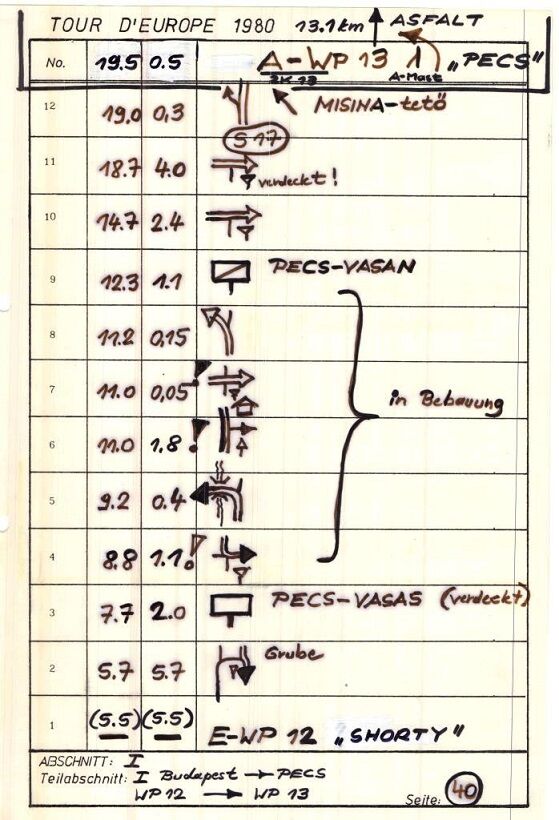 TOUR D'EUROPE 1980 13.1km ASFALT
No. 19.5 0.5 A-WP 13 "PECS"
ZK 13 A-Mast
12 19.0 0,3 MISINA-tetö
S 17
11 18.7 4.0 verdeckt!
10 14.7 2.4
9 12.3 1.1 PECS-VASAN
8 11.2 0,15
7 11.0 0,05
in Bebauung
6 11.0 1.8
5 9.2 0.4
4 8.8 1.1
3 7.7 2.0 PECS-VASAS (verdeckt)
2 5.7 5.7 Grube
1 (5.5) (5.5) E-WP 12 "SHORTY"
ABSCHNITT: I
Teilabschnitt: I Budapest → PECS
WP 12 → WP 13
Seite: 40